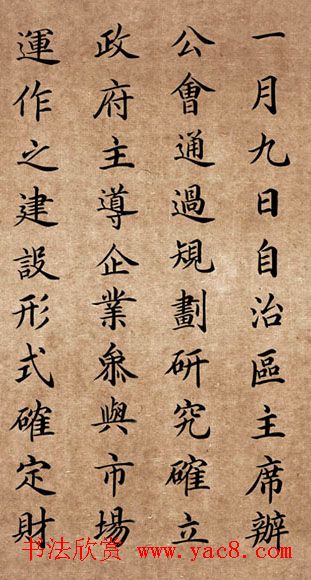 一月九日自治區主席辦
公會通過規劃研究確立
政府主導企業叅與市場
運作之建設形式確定財
书法欣赏 www.yac8.com